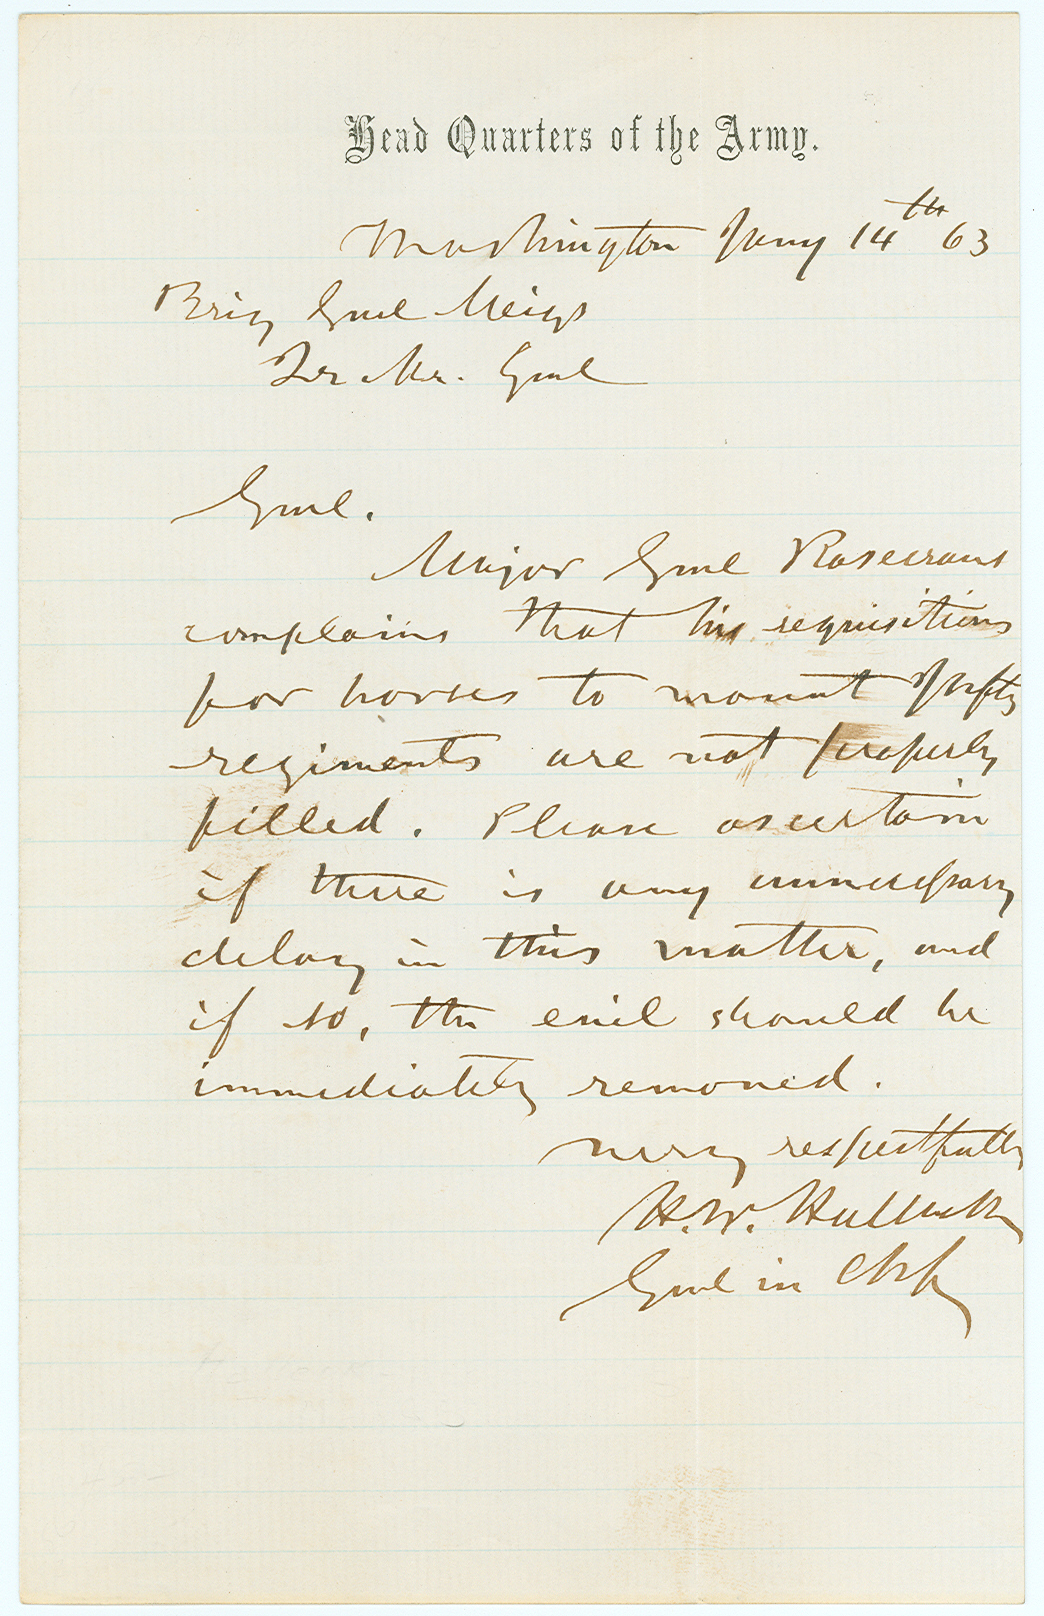 Head Quarters of the Army.
Washington Jany 14th 63
Brig Genl Meigs
Qr Mr. Genl
Genl.
Major Genl Rosecrans
complains that his requisitions
for horses to mount Infty
regiments are not properly
filled. Please ascertain
if there is any unnecessary
delay in this matter, and
if so, the evil should be
immediately removed.
Very respectfully
H. W. Halleck
Genl in Chf